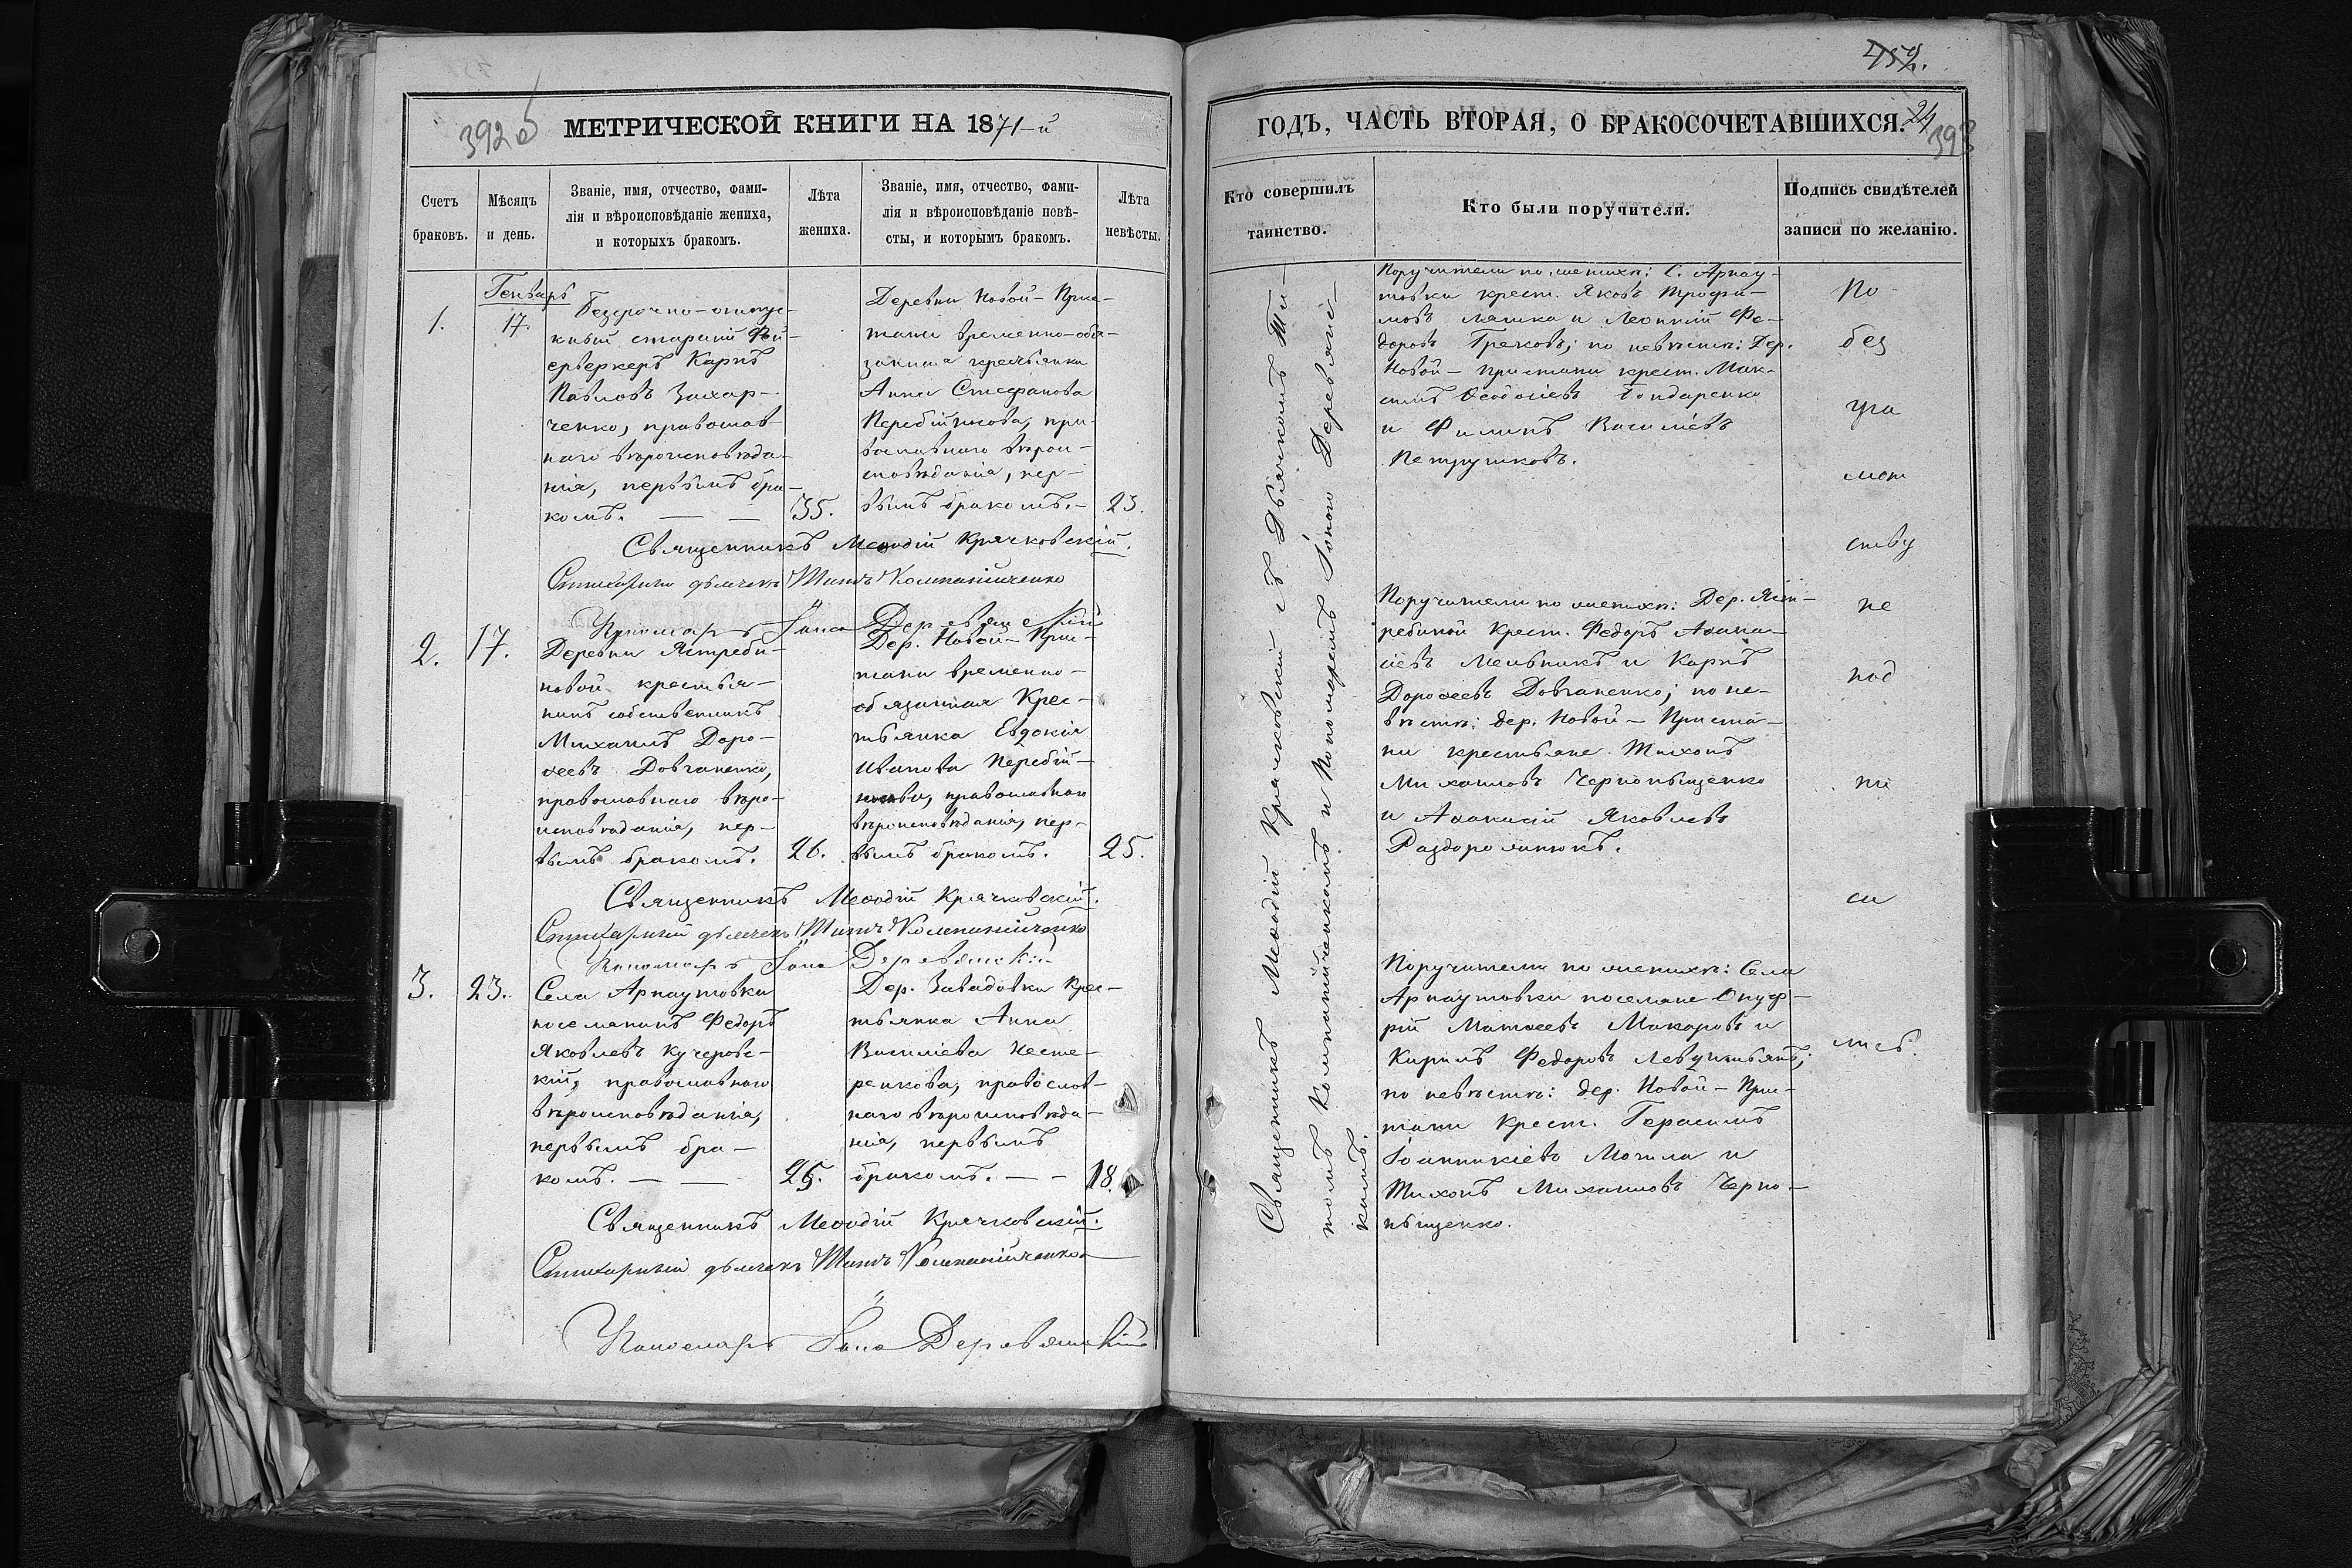 392 об
МЕТРИЧЕСКОЙ КНИГИ НА 1871-й
Счетъ
браковъ.
Мѣсяцъ
и день.
Званіе, имя, отчество, фами-
лія и вѣроисповѣданіе жениха,
и которыхъ бракомъ.
Лѣта
жениха.
Званіе, имя, отчество, фами-
лія и вѣроисповѣданіе невѣ-
сты, и которымъ бракомъ.
Лѣта
невѣсты.
1.
Генварь
17.
Безсрочно-отпус-
кный старшій Фей-
ерверкеръ Карпъ
Павловъ Захар-
ченко, православ-
наго вѣроисповѣда-
нія, первымъ бра-
комъ. — —
35.
Деревни Новой-Прис-
тани временно-обя-
занная крестьянка
Анна Стефанова
Перебійносова, пра-
вославнаго вѣрои-
сповѣданія, пер-
вымъ бракомъ.-
23.
Священникъ Меѳодій Крячковскій.
Стихарный дьячекъ Титъ Компанійченко
Пономарь Іона Деревянскій
2.
17.
Деревни Ястреби-
новой крестья-
нинъ собственникъ
Михаилъ Доро-
ѳеевъ Довганенко,
православнаго вѣро-
исповѣданія, пер-
вымъ бракомъ.
26.
Дер. Новой-Прис-
тани временно-
обязанная Крес-
тьянка Евдокія
Иванова Перебій-
носова, православнаго
вѣроисповѣданія, пер-
вымъ бракомъ.
25.
Священникъ Меѳодій Крячковскій.
Стихарный дьячекъ Титъ Компанійченко
Пономарь Іона Деревянскій
3.
23.
Села Арнаутовки
поселянинъ Федоръ
Яковлевъ Кучеровс-
кій, православнаго
вѣроисповѣданія,
первымъ бра-
комъ. — —
25.
Дер. Завадовки Крес-
тьянка Анна
Василіева Несте-
ренкова, православ-
наго вѣроисповѣда-
нія, первымъ
бракомъ. — -
18.
Священникъ Меѳодій Крячковскій.
Стихарный дьячекъ Титъ Компанійченко
Пономарь Іона Деревянскій
ГОДЪ, ЧАСТЬ ВТОРАЯ, О БРАКОСОЧЕТАВШИХСЯ.
24
393
Кто совершилъ
таинство.
Кто были поручители.
Подпись свидѣтелей
записи по желанію.
Священникъ Меѳодій Крячковскій съ Дьячкомъ Ти-
томъ Компанійченкомъ и Пономаремъ Іоною Деревянс-
кимъ.
Поручители по женихѣ: С. Арнау-
товки крест. Яковъ Трофи-
мовъ Ляшка и Леонтій Фе-
доровъ Грековъ; по невѣстѣ: Дер.
Новой-Пристани крест. Мак-
симъ Ѳеодосіевъ Бондаренко
и Филипъ Василіевъ
Петрушковъ.
Поручители по женихѣ: Дер. Яст-
ребиной Крест. Федоръ Аѳана-
сіевъ Мельникъ и Карпъ
Дороѳеевъ Довганенко; по не-
вѣстѣ: дер. Новой-Приста-
ни крестьяне Тихонъ
Михаиловъ Чернопыщенко
и Аѳанасій Яковлевъ
Поручители по женихѣ: Села
Арнаутовки поселяне Онуф-
рій Матѳеевъ Макаровъ и
Кирилъ Федоровъ
по невѣстѣ: дер. Новой-Прис-
тани Крест. Герасимъ
Іоанникіевъ Могила и
Тихонъ Михаиловъ Черно-
пыщенко.
По
без
гра
мот
ству
не
под
пи
са
лись.